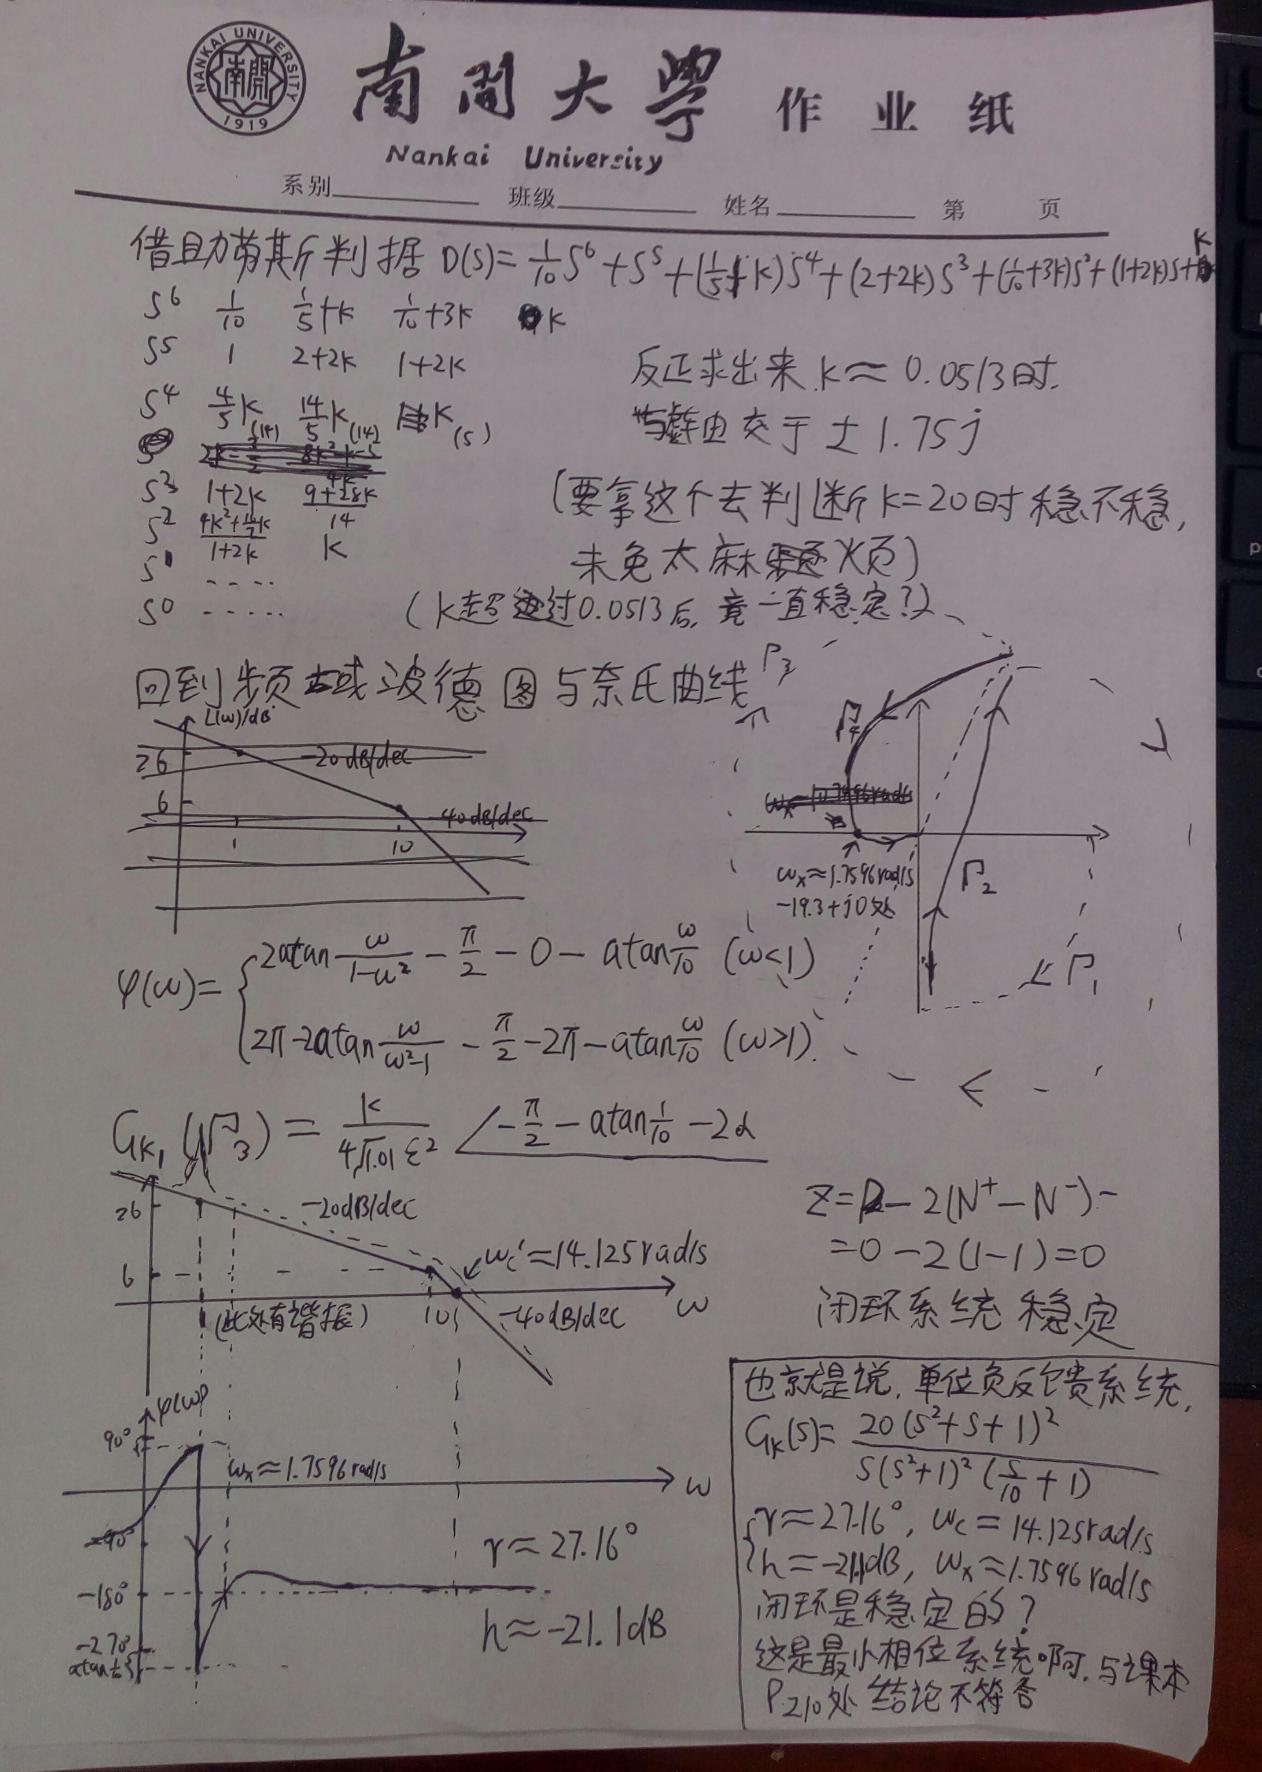 NANKAI UNIVERSITY
南開
1919
南開大學 作业纸
Nankai University
系别 班级 姓名 第 页
借助劳斯判据 D(s)= 1/10 S⁶ + S⁵ + (1/5+K)S⁴ + (2+2K)S³ + (1/10+3K)S² + (1+2K)S + K
S⁶ 1/10 1/5+K 1/10+3K K
S⁵ 1 2+2K 1+2K
S⁴ 4/5 K (14) 14/5 K (14) K (5)
S³ 1+2K 9+28K/14
S² K
S¹ ....
S⁰ .....
反正求出来 K≈0.0513时.
与虚轴交于 ±1.75j
(要拿这个去判断K=20时稳不稳,
未免太麻烦)
(K超过0.0513后,竟一直稳定?)
回到频域波德图与奈氏曲线
L(ω)/dB
26
-20dB/dec
6
-40dB/dec
1
10
Γ₃
Γ₄
ωx≈1.7596rad/s
-19.3+j0处
Γ₂
Γ₁
φ(ω)= { 2atan ω/(1-ω²) - π/2 - 0 - atan ω/10 (ω<1)
2π-2atan ω/(ω²-1) - π/2 - 2π - atan ω/10 (ω>1).
G_K₁(Γ₃) = K/(4√1.01 ε²) ∠ -π/2 - atan 1/10 - 2α
26
-20dB/dec
6
ωc'≈14.125rad/s
(此处有谐振)
10
-40dB/dec
ω
Z=P-2(N⁺-N⁻)
=0-2(1-1)=0
闭环系统稳定
φ(ω)
90°
ωx≈1.7596rad/s
ω
-90°
-180°
-270°
γ≈27.16°
h≈-21.1dB
也就是说,单位负反馈系统,
G_K(s)= 20(s²+s+1)² / s(s²+1)²(s/10+1)
{ γ≈27.16°, ωc=14.125rad/s
h≈-21.1dB, ωx≈1.7596rad/s
闭环是稳定的?
这是最小相位系统啊.与课本
P210处结论不符合